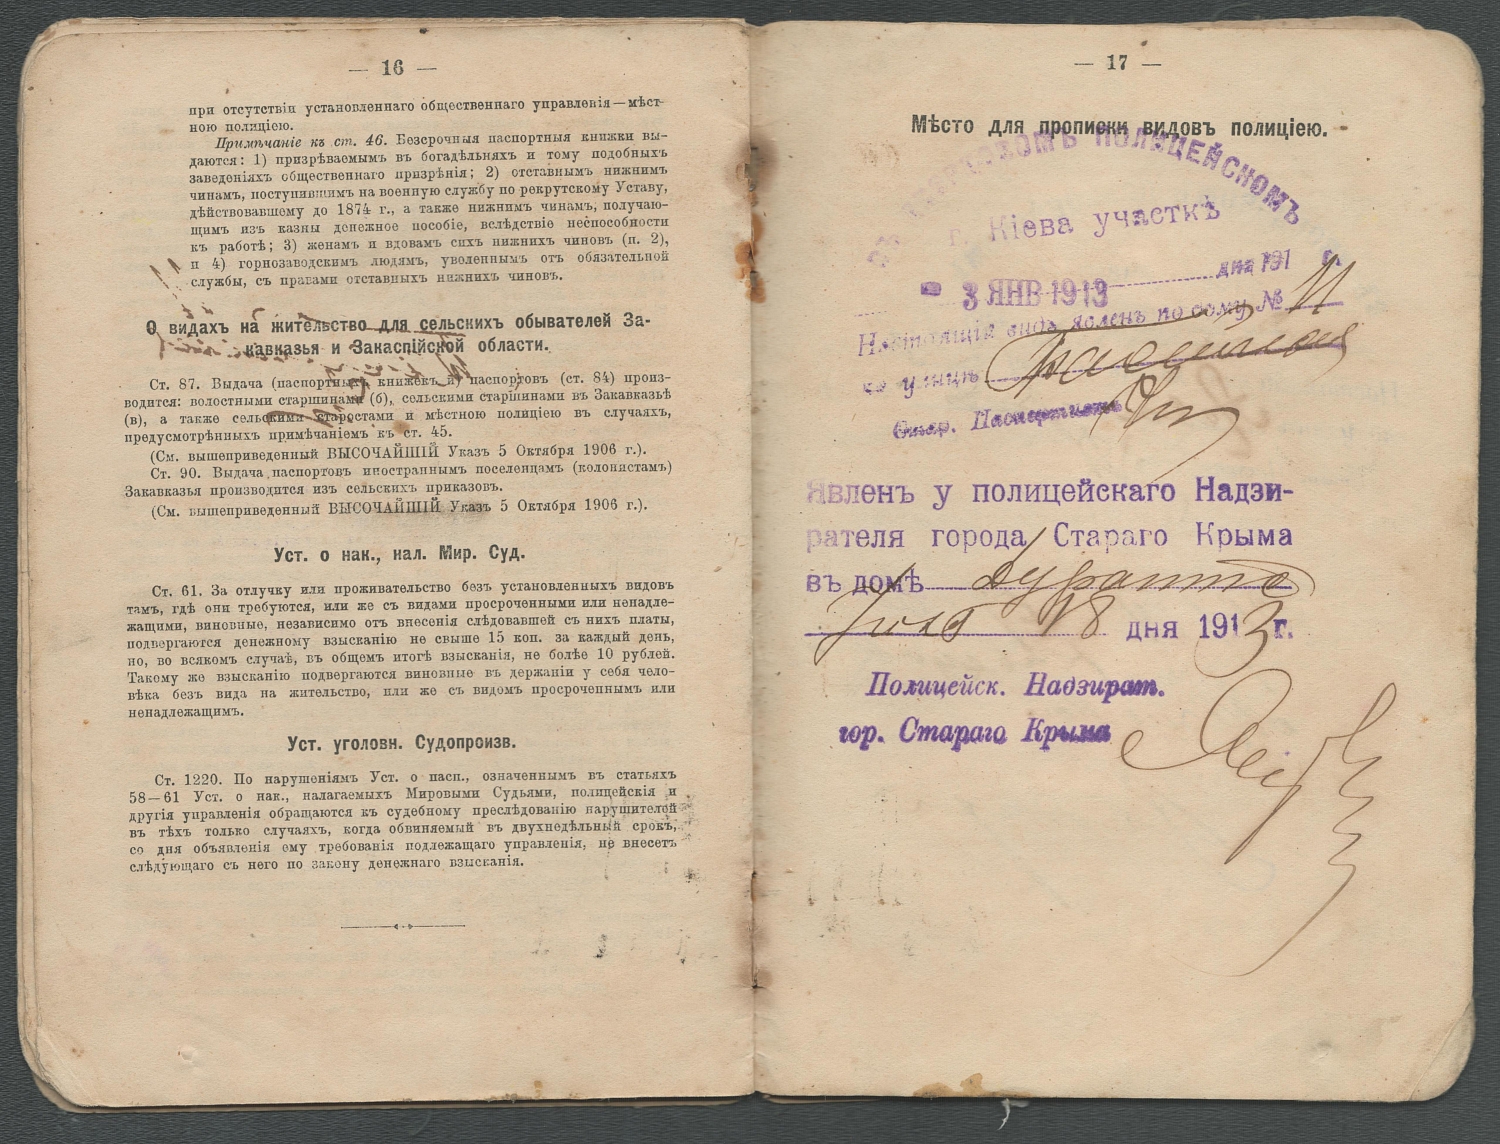 — 16 —
при отсутствіи установленнаго общественнаго управленія—мѣст-
ною полиціею.
Примѣчаніе къ ст. 46. Безсрочныя паспортныя книжки вы-
даются: 1) призрѣваемымъ въ богадѣльняхъ и тому подобныхъ
заведеніяхъ общественнаго призрѣнія; 2) отставнымъ нижнимъ
чинамъ, поступившимъ на военную службу по рекрутскому Уставу,
дѣйствовавшему до 1874 г., а также нижнимъ чинамъ, получаю-
щимъ изъ казны денежное пособіе, вслѣдствіе неспособности
къ работѣ; 3) женамъ и вдовамъ сихъ нижнихъ чиновъ (п. 2),
и 4) горнозаводскимъ людямъ, уволеннымъ отъ обязательной
службы, съ правами отставныхъ нижнихъ чиновъ.
О видахъ на жительство для сельскихъ обывателей За-
кавказья и Закаспійской области.
Ст. 87. Выдача (паспортныхъ книжекъ и) паспортовъ (ст. 84) произ-
водится: волостными старшинами (б), сельскими старшинами въ Закавказьѣ
(в), а также сельскими старостами и мѣстною полиціею въ случаяхъ,
предусмотрѣнныхъ примѣчаніемъ къ ст. 45.
(См. вышеприведенный ВЫСОЧАЙШІЙ Указъ 5 Октября 1906 г.).
Ст. 90. Выдача паспортовъ иностраннымъ поселенцамъ (колонистамъ)
Закавказья производится изъ сельскихъ приказовъ.
(См. вышеприведенный ВЫСОЧАЙШІЙ Указъ 5 Октября 1906 г.).
Уст. о нак., нал. Мир. Суд.
Ст. 61. За отлучку или проживательство безъ установленныхъ видовъ
тамъ, гдѣ они требуются, или же съ видами просроченными или ненадле-
жащими, виновные, независимо отъ внесенія слѣдовавшей съ нихъ платы,
подвергаются денежному взысканію не свыше 15 коп. за каждый день,
но, во всякомъ случаѣ, въ общемъ итогѣ взысканія, не болѣе 10 рублей.
Такому же взысканію подвергаются виновные въ держаніи у себя чело-
вѣка безъ вида на жительство, или же съ видомъ просроченнымъ или
ненадлежащимъ.
Уст. уголовн. Судопроизв.
Ст. 1220. По нарушеніямъ Уст. о пасп., означеннымъ въ статьяхъ
58—61 Уст. о нак., налагаемыхъ Мировыми Судьями, полицейскія и
другія управленія обращаются къ судебному преслѣдованію нарушителей
въ тѣхъ только случаяхъ, когда обвиняемый въ двухнедѣльный срокъ,
со дня объявленія ему требованія подлежащаго управленія, не внесетъ
слѣдующаго съ него по закону денежнаго взысканія.
— 17 —
Мѣсто для прописки видовъ полиціею.
ПОЛИЦЕЙСКОМЪ
г. Кіева участкѣ
дня 191 г.
3 ЯНВ 1913
Настоящій видъ явленъ по дому № 11
по улицѣ
Стар. Паспортистъ
Явленъ у полицейскаго Надзи-
рателя города Стараго Крыма
въ домѣ Дуранте
18 дня 1913 г.
Полицейск. Надзират.
гор. Стараго Крыма